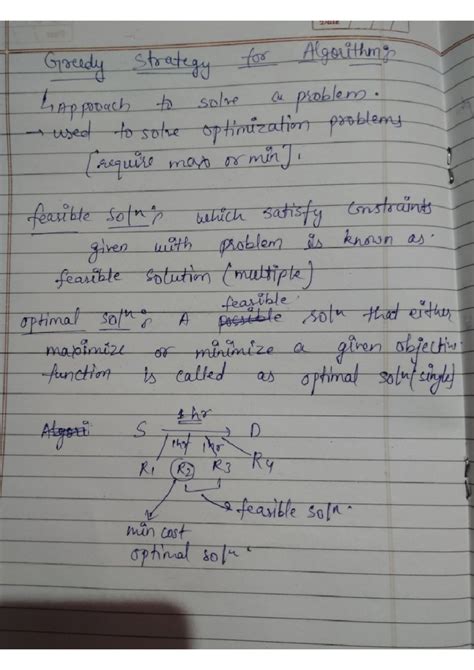 Greedy Strategy for Algorithms
↳ Approach to solve a problem.
→ used to solve optimization problems
[require max or min].
feasible solⁿ: which satisfy constraints
given with problem is known as
feasible solution (multiple)
feasible
optimal solⁿ: A possible solⁿ that either
maximize or minimize a given objective
function is called as optimal solⁿ (single)
1 hr
Algori S → D
1hr 1hr
R1 R2 R3 R4
feasible solⁿ.
min cost
optimal solⁿ.